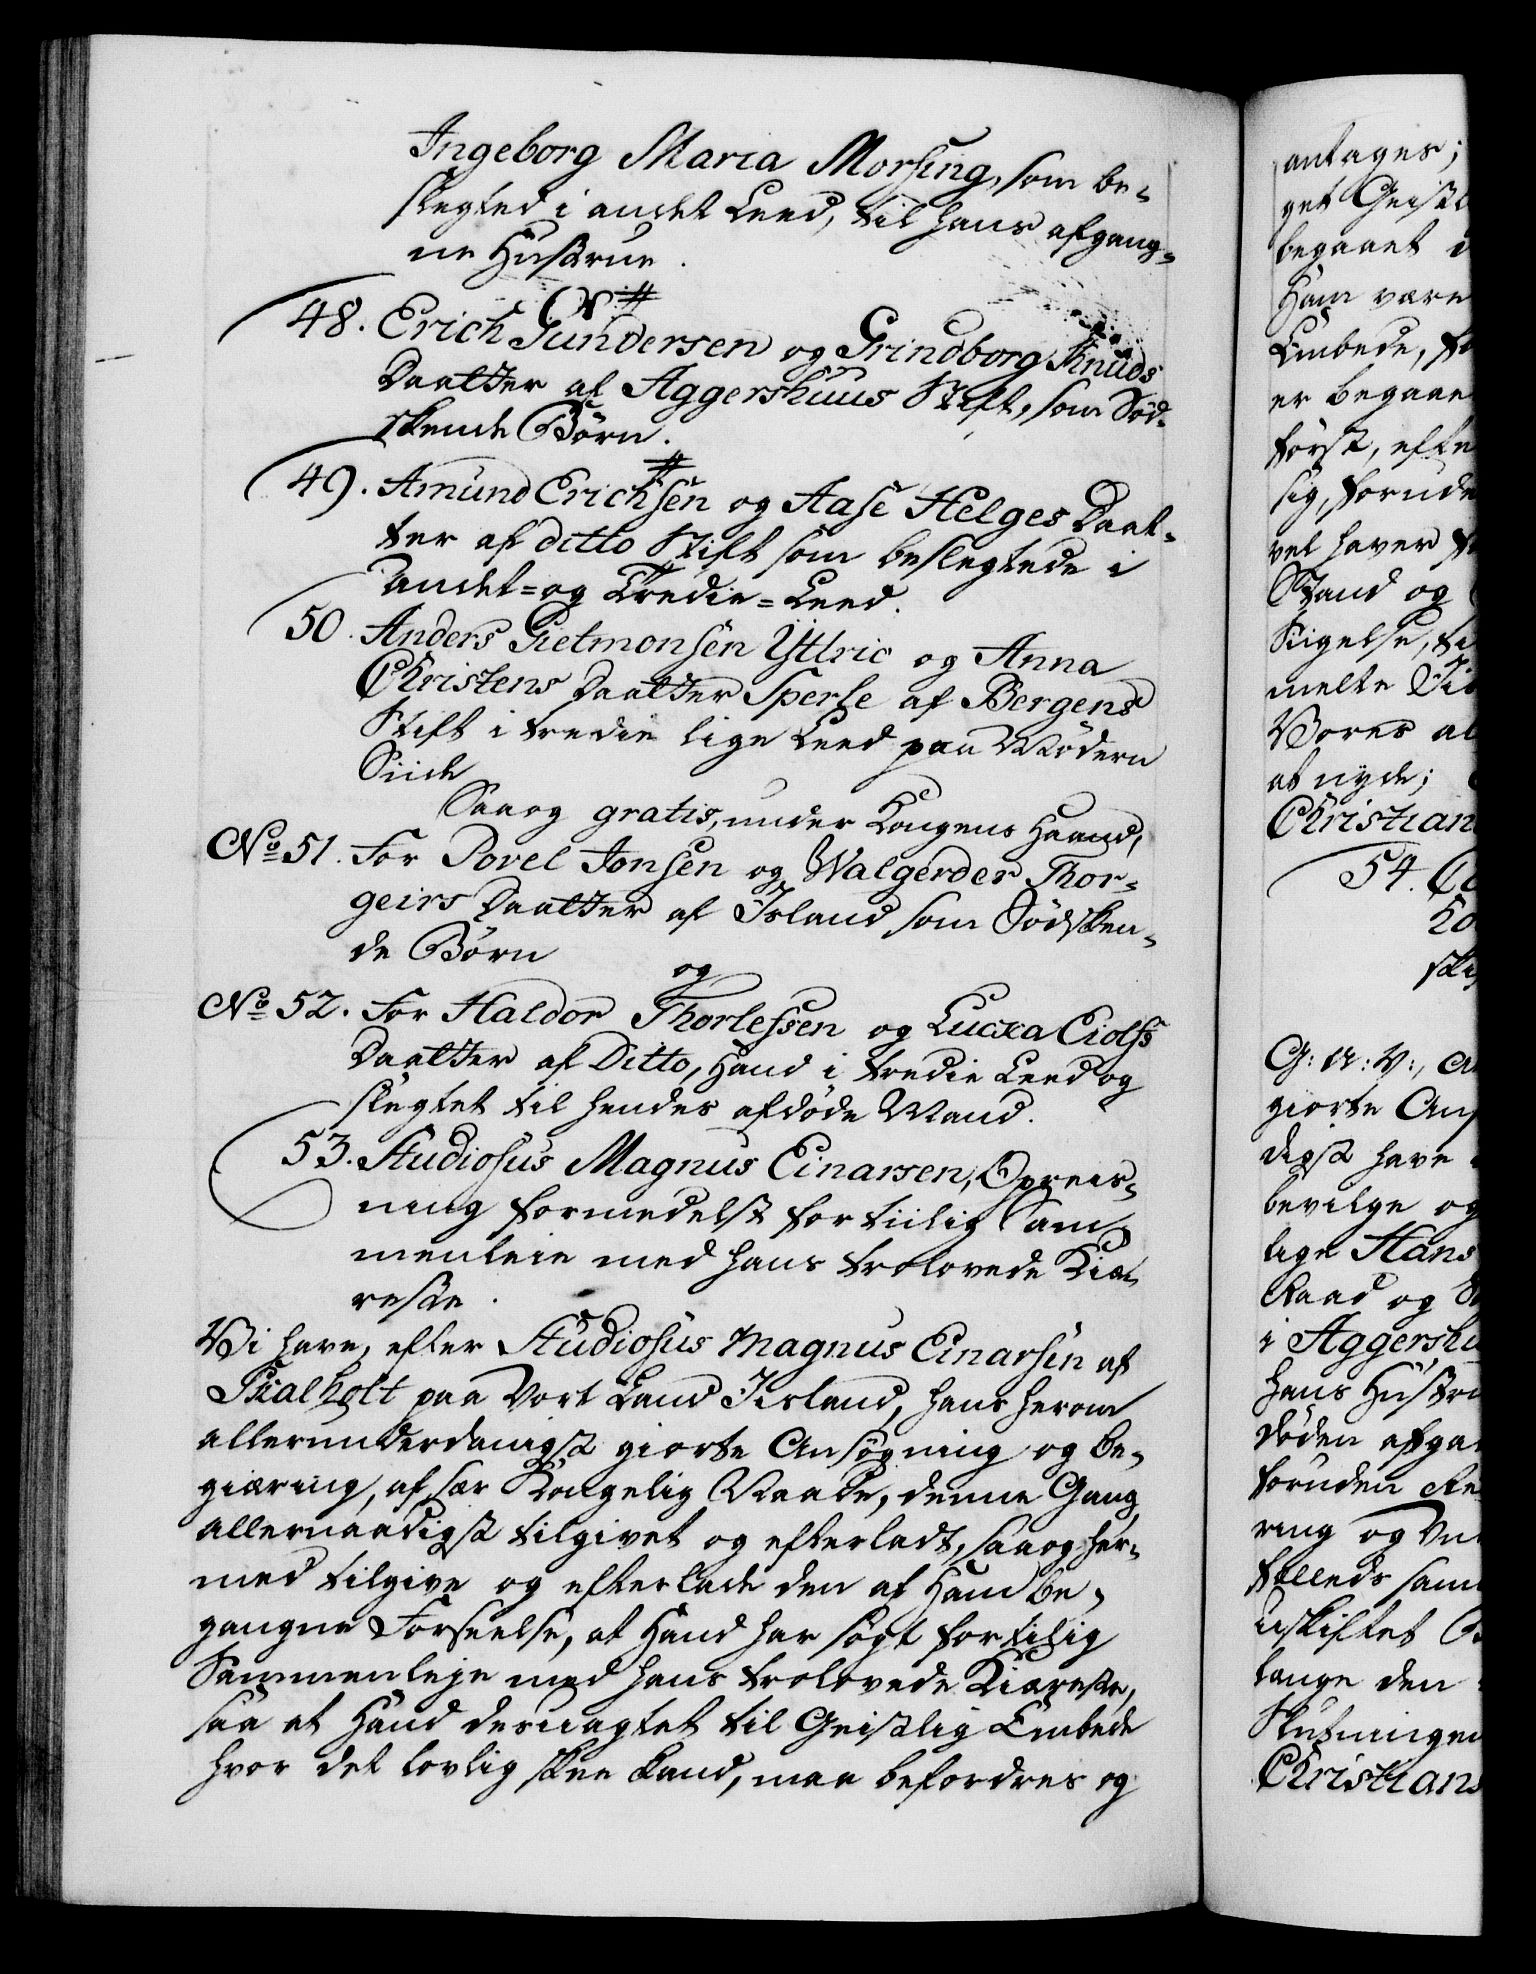 Ingeborg Maria Morsing, som be-
slegted i andet Leed, til hans afgang-
ne Hustrue.
48. Erich Gundersen og Grindborg Knuds
Daatter af Aggershuus Stift, som Sød-
skende Børn.
49. Amund Erichsen og Aase Helges Daat-
ter af ditto Stift som beslegtede i
andet- og Tredie-Leed.
50. Anders Gietmonsen Ytlric og Anna
Christens Daatter Sperle af Bergens
Stift i tredie lige Leed paa Mødern
Siide
Saaog gratis, under Kongens Haand,
No 51. For Povel Jonsen og Walgerder Thor-
geirs Daatter af Island som Sødsken-
de Børn
og
No 52. For Haldor Thorlefssen og Lucxa Eiolfs
Daatter af Ditto, Hand i tredie Leed og
slegtet til hendes afdøde Mand.
53. Studiosus Magnus Einarsen, Opreis-
ning formedelst for tiilig Sam-
menleie med hans trolovede Kiæ-
reste.
Vi have, efter Studiosus Magnus Einarsen af
Skalholt paa Vort Land Iisland, hans herom
allerunderdanigst giorte Ansøgning og be-
giæring, af sær Kongelig Naade, denne Gang
allernaadigst tilgivet og efterladt, saaog her-
med tilgive og efterlade den af Hand be-
gangne Forseelse, at Hand har søgt for tilig
Sammenleje med hans trolovede Kiæreste,
saa at Hand desuagtet til Geistlig Embede
hvor det lovlig skee kand, maa befordres og
antages;
get Geistl
begaaet
Ham være
Embede, fo
er begaae
først, efte
sig, forude
vel haver
Stand og
Stigelse, ti
melte
Vores al
at nyde;
Christian
54.
G: A: V:, A
giorte Ans
digst have
bevilge og
lige Hans
Raad og
i Aggershu
hans Hustru
døden afga
foruden
ring og
felleds sam
uskiftet
lange den
Slutninge
Christians